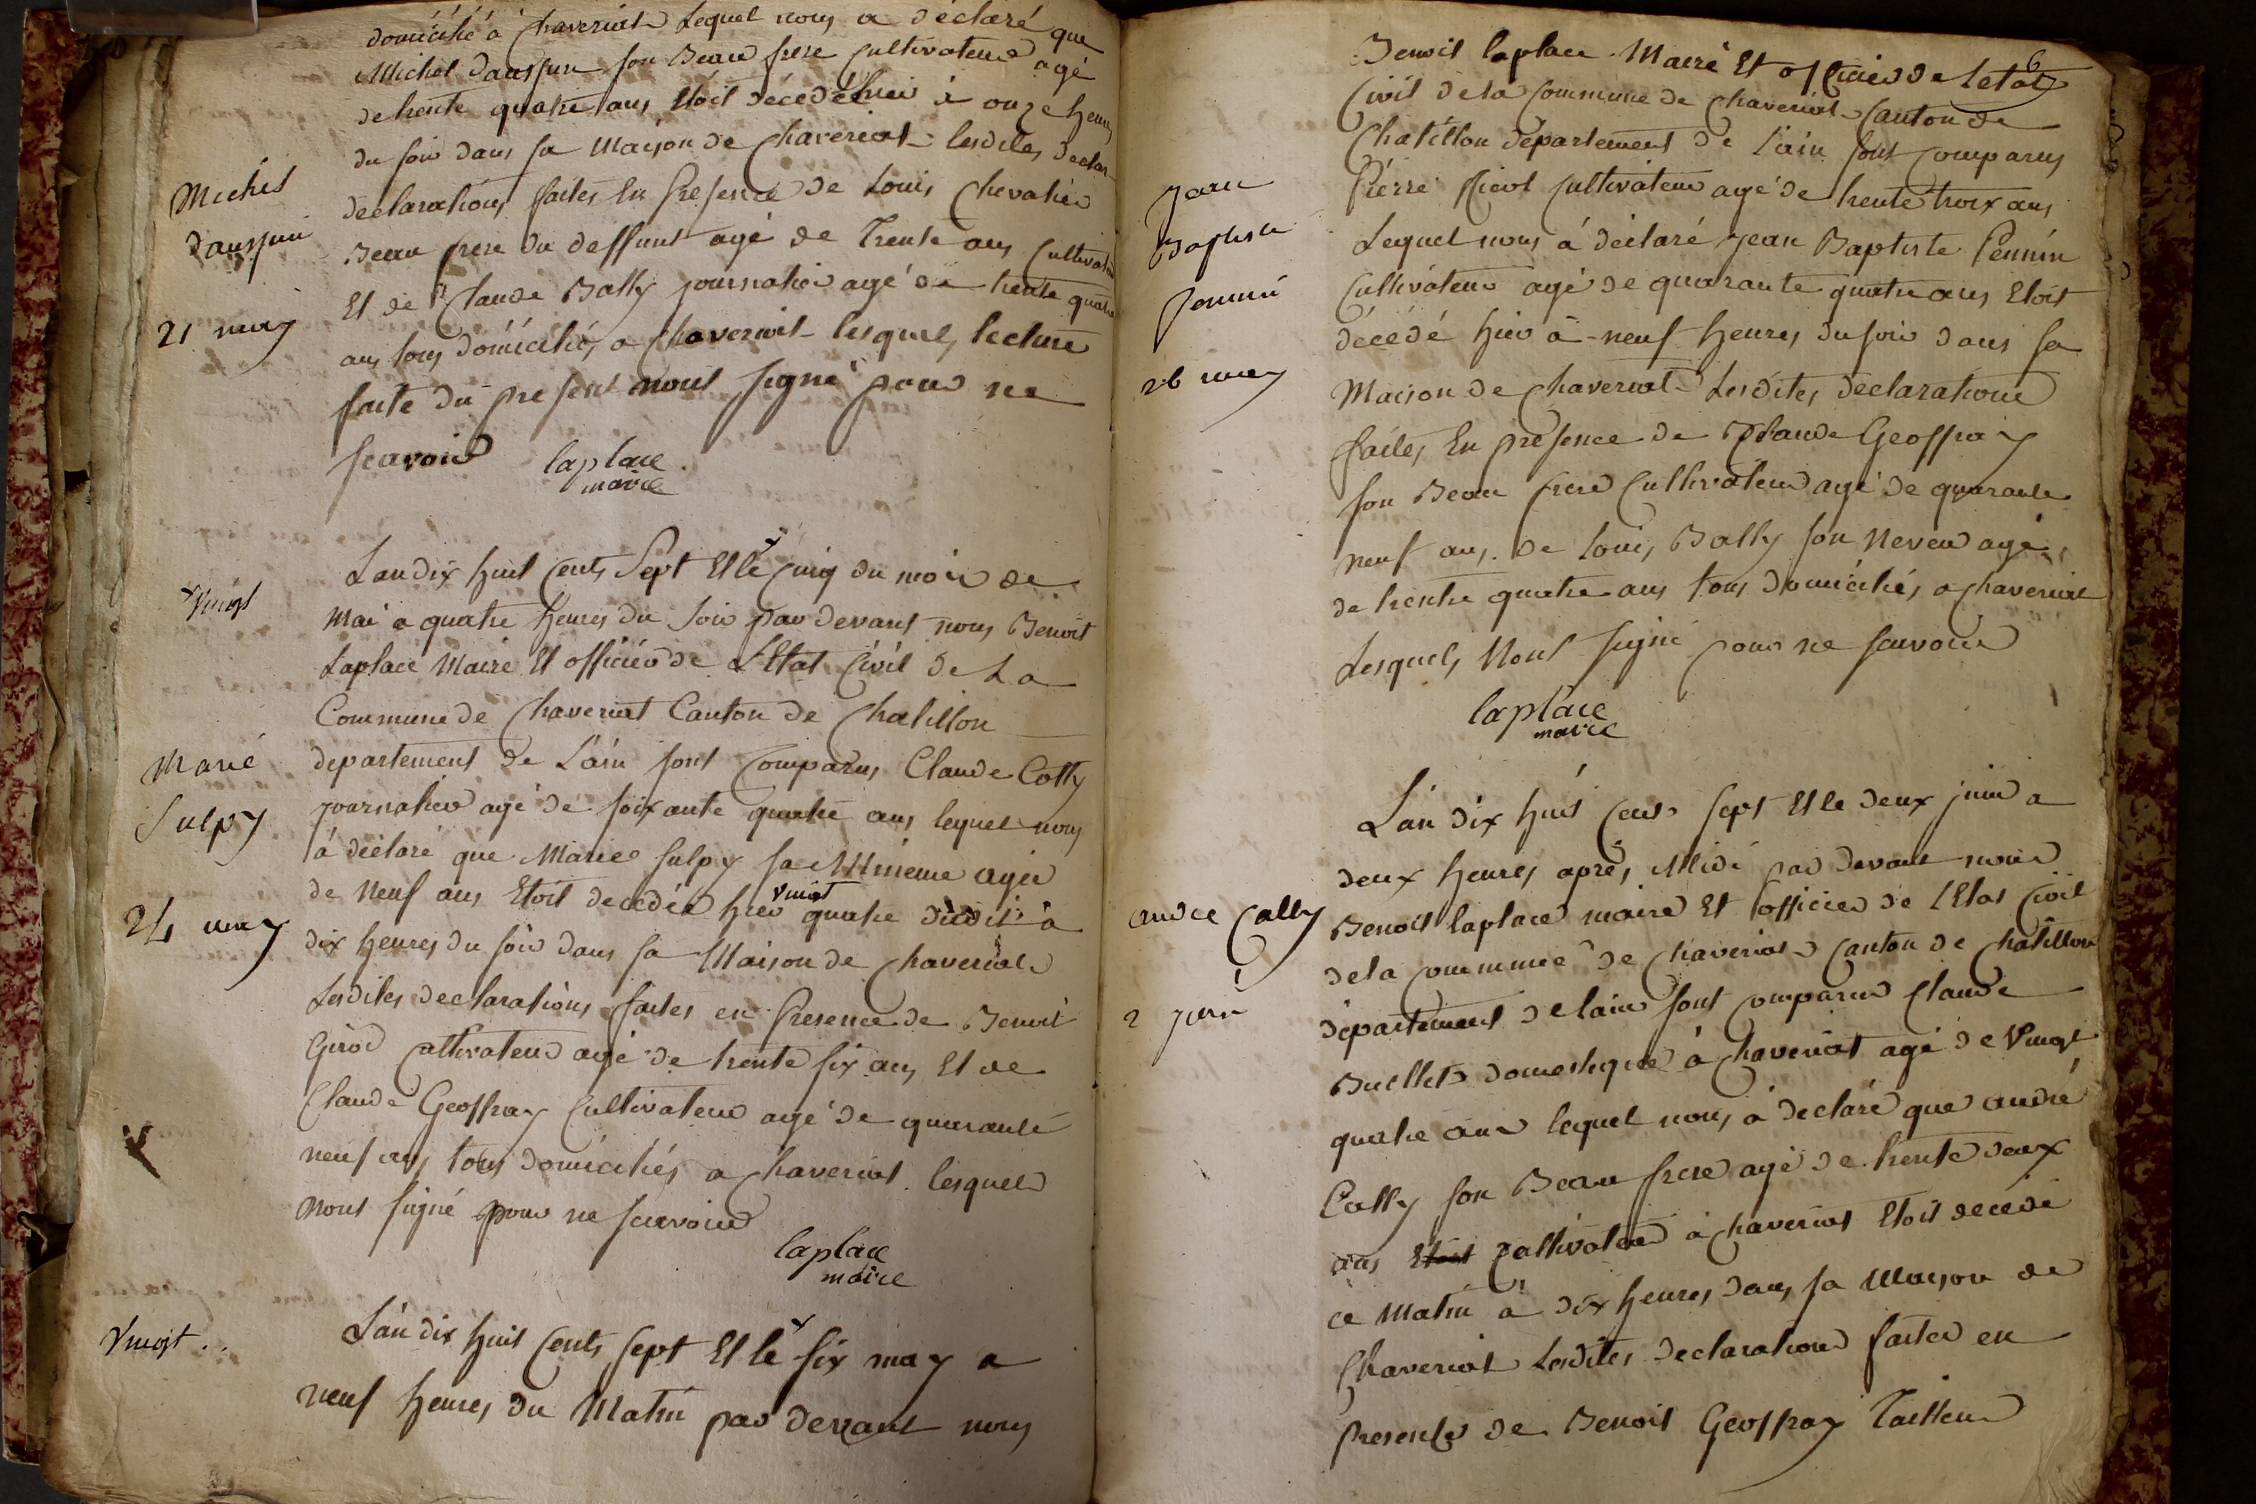 domicilié a Chaveriat Lequel nous a déclaré que
Michel Dausjun son Beau frere Cultivateur agé
de trente quatre ans Etoit décedé hier à onze heures
du soir dans sa Maison de Chaveriat lesdites declar
declarations faites En presence de Louis Chevalier
Michel
Dausjun
21 may
Beau frere du deffunt agé de Trente ans Cultivateur
Et de Claude Bally journalier agé de trente quatre
ans tous domiciliés a Chaveriat lesquels lecture
faite du present nont signé pour ne
scavoir laplace
maire
Lan dix huit Cents Sept Et le cinq du mois de
vingt
Mai a quatre heures du soir par devant nous Benoit
Laplace Maire Et officier de L'Etat Civil de La
Commune de Chaveriat Canton de Chatillon
departement de L'ain sont Comparus Claude Cotty
Marie
Sulpy
24 may
journalier agé de soixante quatre ans lequel nous
à déclaré que Marie Sulpy sa agée
de Neuf ans Etoit decedée hier vingt quatre dudit à
dix heures du soir dans sa Maison de Chaveriat
Lesdites declarations faites en presence de Benoit
Girod Cultivateur agé de trente six ans Et de
Claude Geoffray Cultivateur agé de quarante
neuf ans tous domiciliés a Chaveriat lesquels
nont signé pour ne scavoir
laplace
maire
Vingt
L'an dix huit Cents sept Et le six may a
neuf heures du Matin par devant nous
6
Benoit laplace Maire Et officier de letat
Civil de la Commune de Chaveriat Canton de
Chatillon departement de l'ain sont Comparus
Pierre Cultivateur agé de trente troix ans
Jean
Baptiste
Pennin
26 may
Lequel nous à déclaré jean Baptiste Pennin
Cultivateur agé de quarante quatre ans Etoit
décédé hier à neuf heures du soir dans sa
Maison de Chaveriat Lesdites declarations
faites En presence de Claude Geoffray
son Beau frere Cultivateur agé de quarante
neuf ans. de Louis Bally son Neveu agé
de trente quatre ans tous domiciliés a Chaveriat
Lesquels Nont signé pour ne scavoir
laplace
maire
L'an dix huit Cents sept Et le deux juin a
deux heures après Midi par devant nous
andre Cally
2 juin
Benoit laplace maire Et officier de l'Etat Civil
de la commune de Chaveriat Canton de Chatillon
département de lain sont comparus Claude
Buellet domestique à Chaveriat agé de Vingt
quatre ans lequel nous à declaré que andré
Cally son Beau frere agé de trente deux
ans Etoit Cultivateur à Chaveriat Etoit decedé
ce Matin à dix heures dans sa Maison de
Chaveriat Lesdites declarations faites en
presence de Benoit Geoffray Tailleur